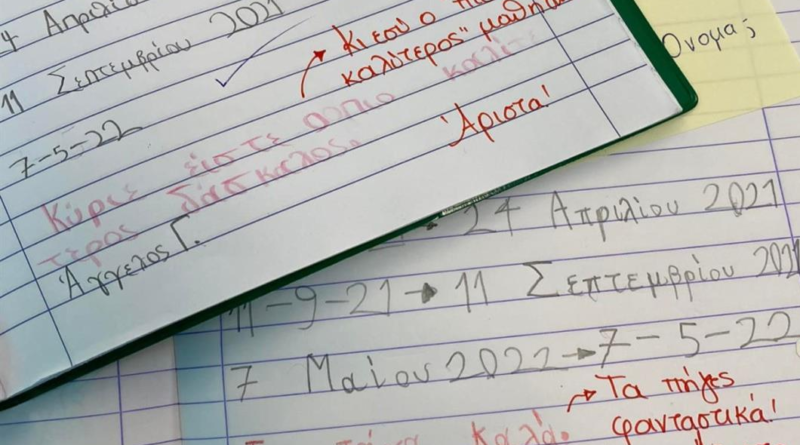 11 Σεπτεμβρίου 2021
7-5-22
Κι εσύ ο
καλύτερος" μαθη
Κύριε είστε ο πιο καλύ
τερος δάσκαλος.
Άριστα!
Άγγελος Γ.
Όνομα;
24 Απριλίου 2021
11-9-21→11 Σεπτεμβρίου 2021
7 Μαΐου 2022→7-5-22
Τα πήγες
φανταστικά!
καλά.